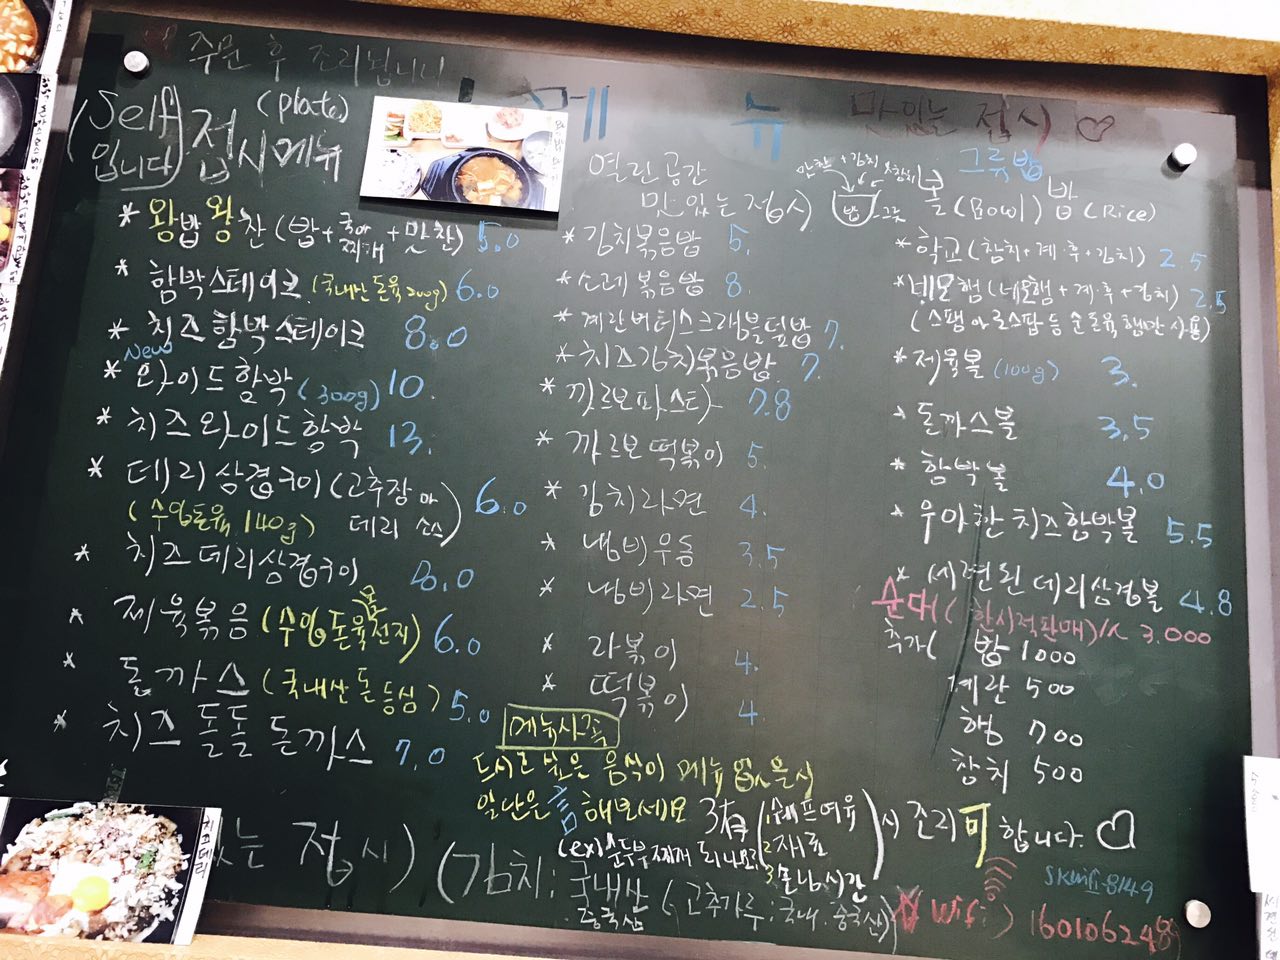 주문 후 조리됩니다
(Self 입니다)
접시메뉴
(plate)
메 뉴
맛있는 접시 ♡
* 왕밥 왕찬 (밥+국or찌개+반찬) 5.0
* 함박스테이크 (국내산 돈육 200g) 6.0
* 치즈함박스테이크 8.0
New
* 와이드함박 (300g) 10.
* 치즈와이드함박 13.
* 데리삼겹구이 (고추장 or 데리 소스) 6.0
(수입돈육 140g)
* 치즈데리삼겹구이 8.0
* 제육볶음 (수입돈육 전지) 6.0
* 돈까스 (국내산 돈 등심) 5.0
* 치즈 돌돌 돈까스 7.0
열린공간
맛있는 접시
* 김치볶음밥 5.
* 소레볶음밥 8.
* 계란버터스크램블덮밥 7.
* 치즈김치볶음밥 7.
* 까르보파스타 7.8
* 까르보떡볶이 5.
* 김치라면 4.
* 냄비우동 3.5
* 냄비라면 2.5
* 라볶이 4.
* 떡볶이 4.
그릇밥
볼 (Bowl) 밥 (Rice)
반찬 +김치
밥
* 학교 (참치+계·후+김치) 2.5
* 네모햄 (네모햄+계·후+김치) 2.5
(스팸 아 로스팜 등 순돈육 햄만 사용)
* 제육볼 (100g) 3.
* 돈까스볼 3.5
* 함박볼 4.0
* 우아한 치즈함박볼 5.5
* 세련된 데리삼겹볼 4.8
순대 (한시적판매) 3.000
추가( 밥 1000
계란 500
햄 700
참치 500
메뉴사족
드시고 싶은 음식이 메뉴 없으시
일단은 해보세요
(ex) 순두부찌개 되나요?
1.셰프여유
2.재료
3.손님시간
시 조리 可 합니다. ♡
는 접시)
(김치: 국내산
중국산
(고추가루: 국내·중국산)
SKwifi-8149
Wifi) 1601062489